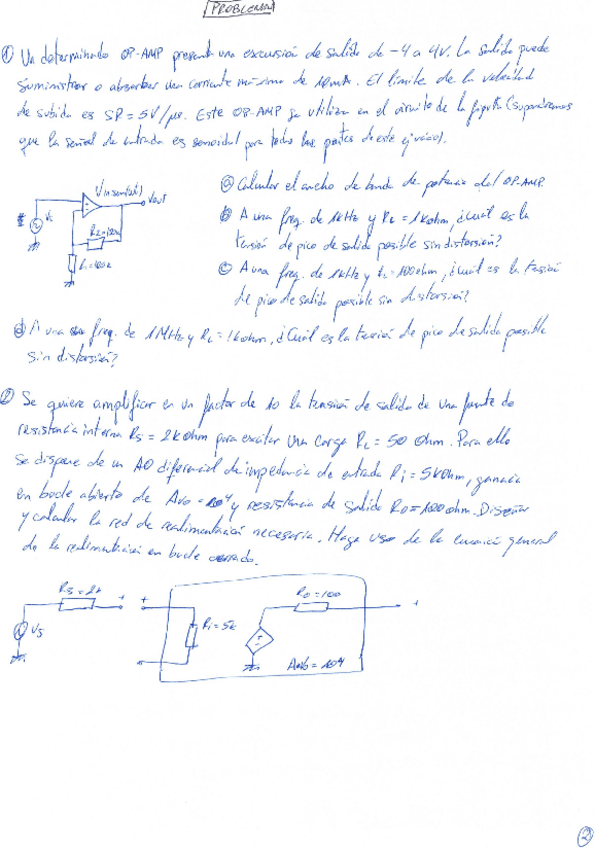 PROBLEMAS
① Un determinado OP-AMP presenta una excursión de salida de -4 a 4V. La salida puede
suministrar o absorber una corriente máxima de 10mA. El límite de la velocidad
de subida es SR = 5V/μs. Este OP-AMP se utiliza en el circuito de la figura (supondremos
que la señal de entrada es senoidal para todas las partes de este ejercicio).
ⓐ Calcular el ancho de banda de potencia del OP-AMP.
ⓑ A una freq. de 1kHz y RL = 1kohm, ¿Cuál es la
tensión de pico de salida posible sin distorsión?
ⓒ A una freq. de 1kHz y RL = 100ohm, ¿Cuál es la tensión
de pico de salida posible sin distorsión?
Vout
ⓓ A una freq. de 1MHz y RL = 1kohm, ¿Cuál es la tensión de pico de salida posible
sin distorsión?
② Se quiere amplificar en un factor de 10 la tensión de salida de una fuente de
resistencia interna Rs = 2kohm para excitar una carga RL = 50 Ohm. Para ello
se dispone de un AO diferencial de impedancia de entrada Ri = 5kOhm, ganancia
en bucle abierto de Avo = 10⁴ y resistencia de salida Ro = 100 ohm. Diseñar
y calcular la red de realimentación necesaria. Haga uso de la ecuación general
de la realimentación en bucle cerrado.
Rs = 2k
+ +
Ro = 100
+
Vs
Ri = 5k
Avo = 10⁴
②